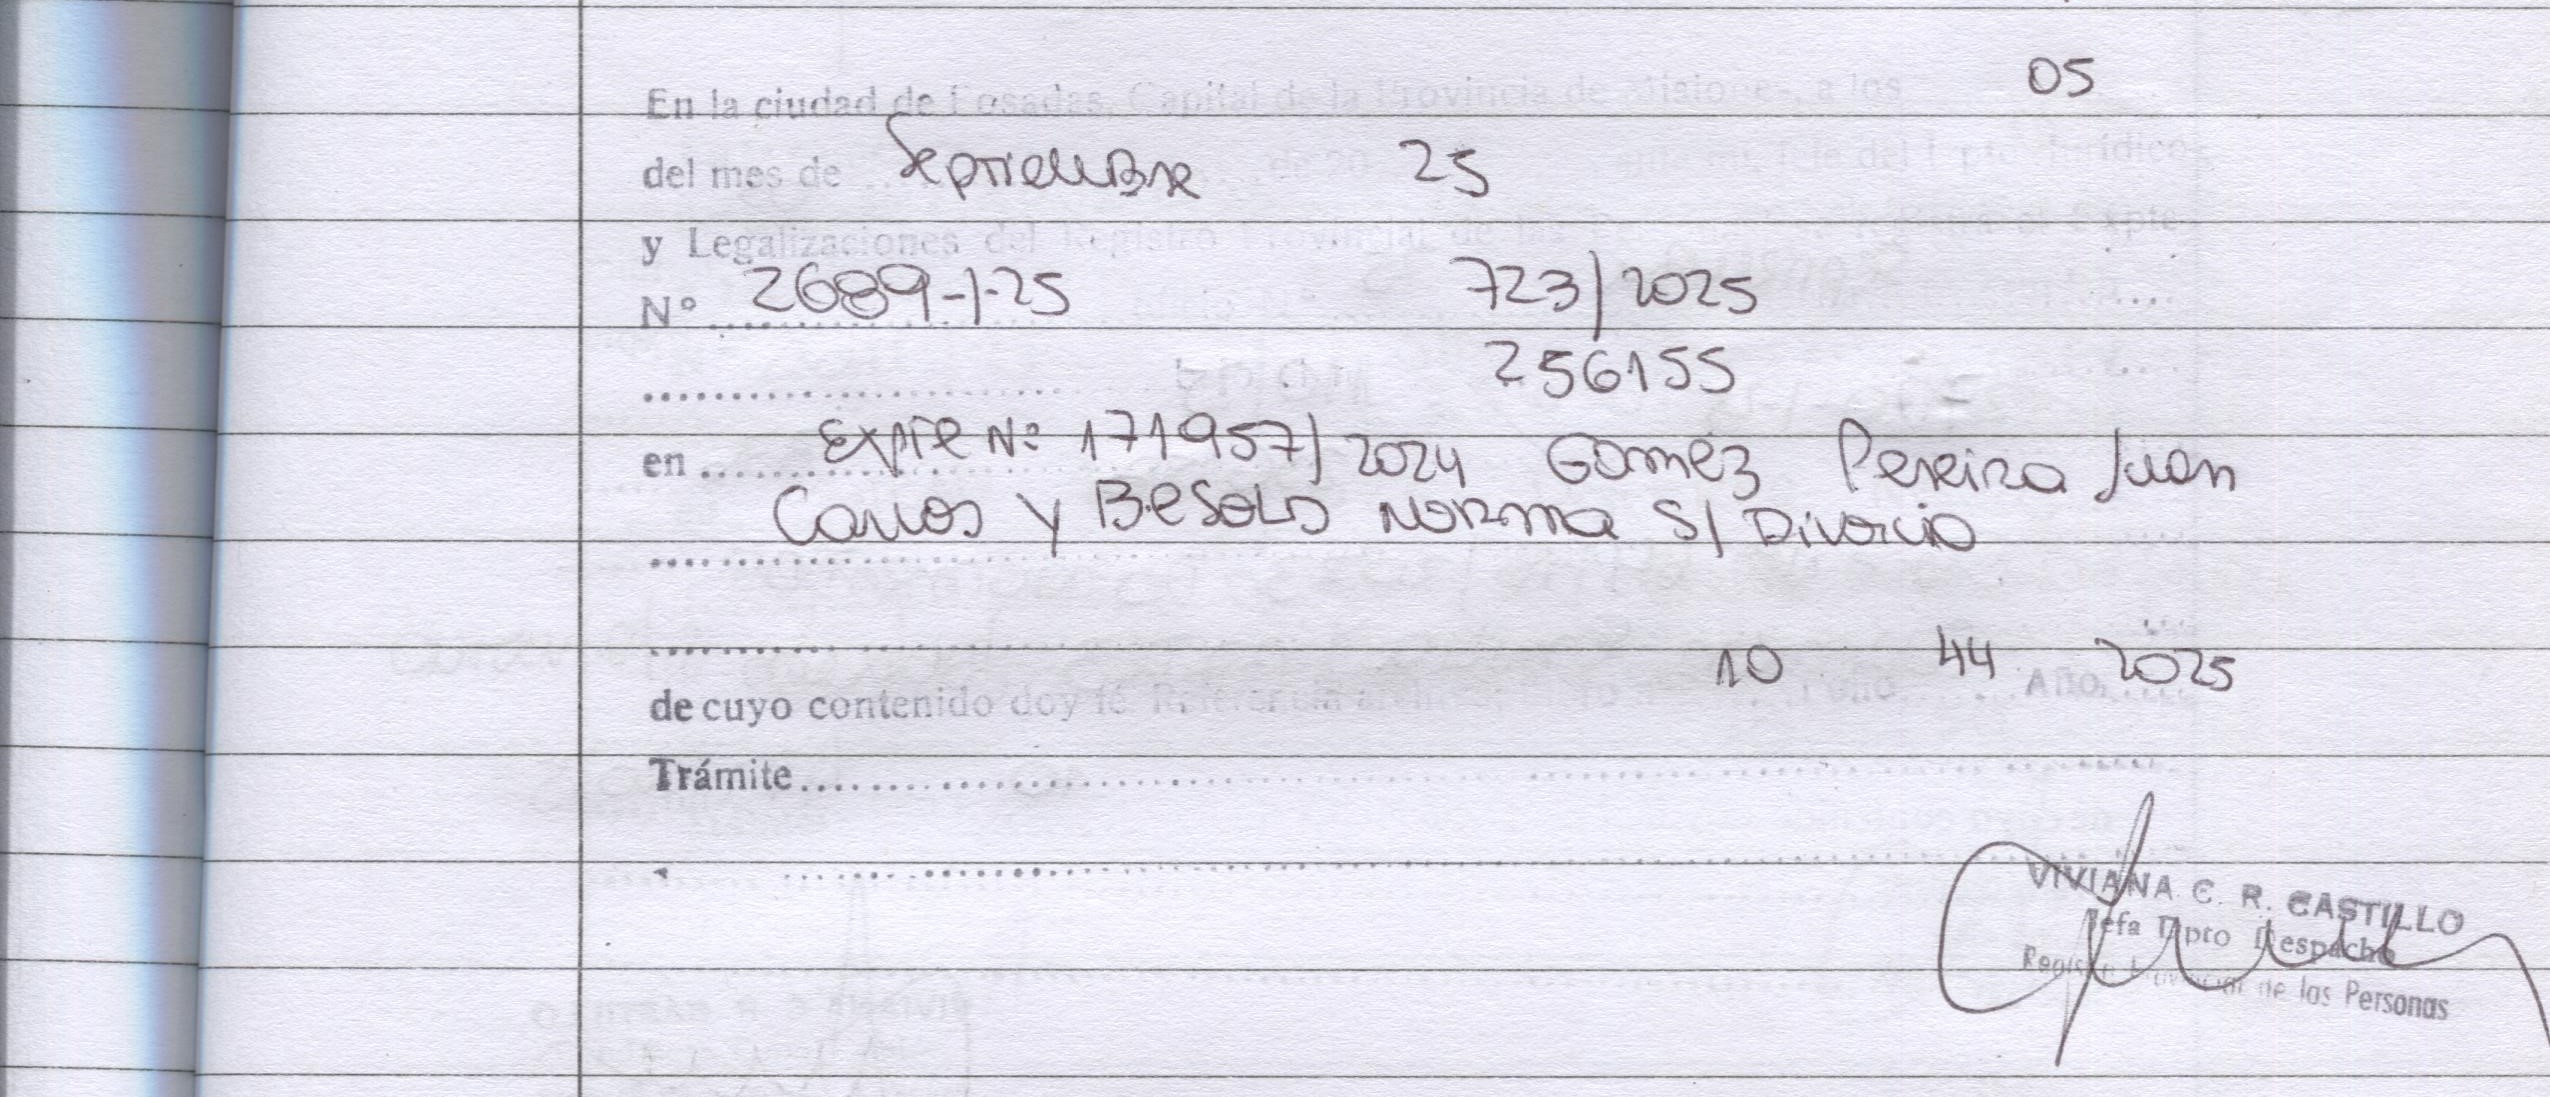 05
En la ciudad de Posadas, Capital de la Provincia de Misiones, a los
del mes de Septiembre de 20 25 Jefe del Dpto Jurídico
y Legalizaciones del Registro Provincial de las
Nº 2689-1-25 723/2025
256155
en Expte Nº 171957/2024 Gomez Pereira Juan
Carlos y Besold Norma S/ Divorcio
10 44 2025
de cuyo contenido doy fé Referencia Año
Trámite
VIVIANA C. R. CASTILLO
Jefa Dpto Despacho
Registro Provincial de las Personas